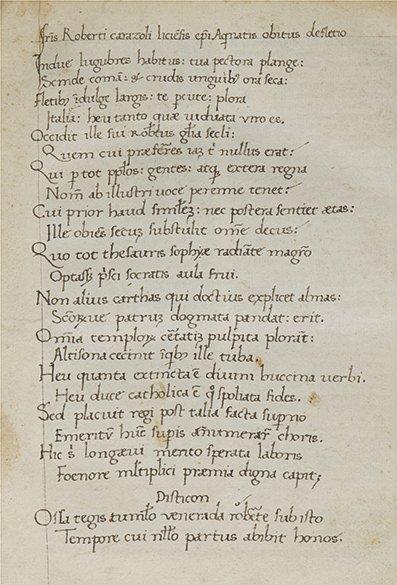 Fris Roberti carazoli liciẽsis epi Aqnatis obitus defletio
Indue lugubres habitus: tua pectora plange:
Scinde comã: & crudis unguibȝ ora seca:
Fletibȝ ĩdulge largis: te pcute: plora
Italiã: heu tanto quæ uiduata uiro es.
Occidit ille sui robtus glia secli:
Quem cui præferres iaz t' nullus erat:
Qui p tot pplos: gentes: atq extera regna
Nom̃ ab illustri uoce perenne tenet:
Cui prior haud similez: nec postera sentiet ætas:
Ille obiens secuz substulit omẽ decus:
Quo tot thesauris sophyæ radiãte magro
Optass psci socratis aula frui.
Non alius carthas qui doctius explicet almas:
Scorue patruz dogmata pandat: erit.
Omia temploz pulpita plorãt:
Altisona cecinit ille tuba.
Heu quanta extincta ẽ diuini buccina uerbi.
Heu duce catholica ẽ spoliata fides.
Sed placuit regi post talia facta supno
Emeritũ hũc supis choris.
Hic longæui merito sperata laboris
Foenore multiplici præmia digna capit;
Disticon
Ossa tegis tumlo ueneranda robte sub isto
Tempore cui nllo partus abibit honos.